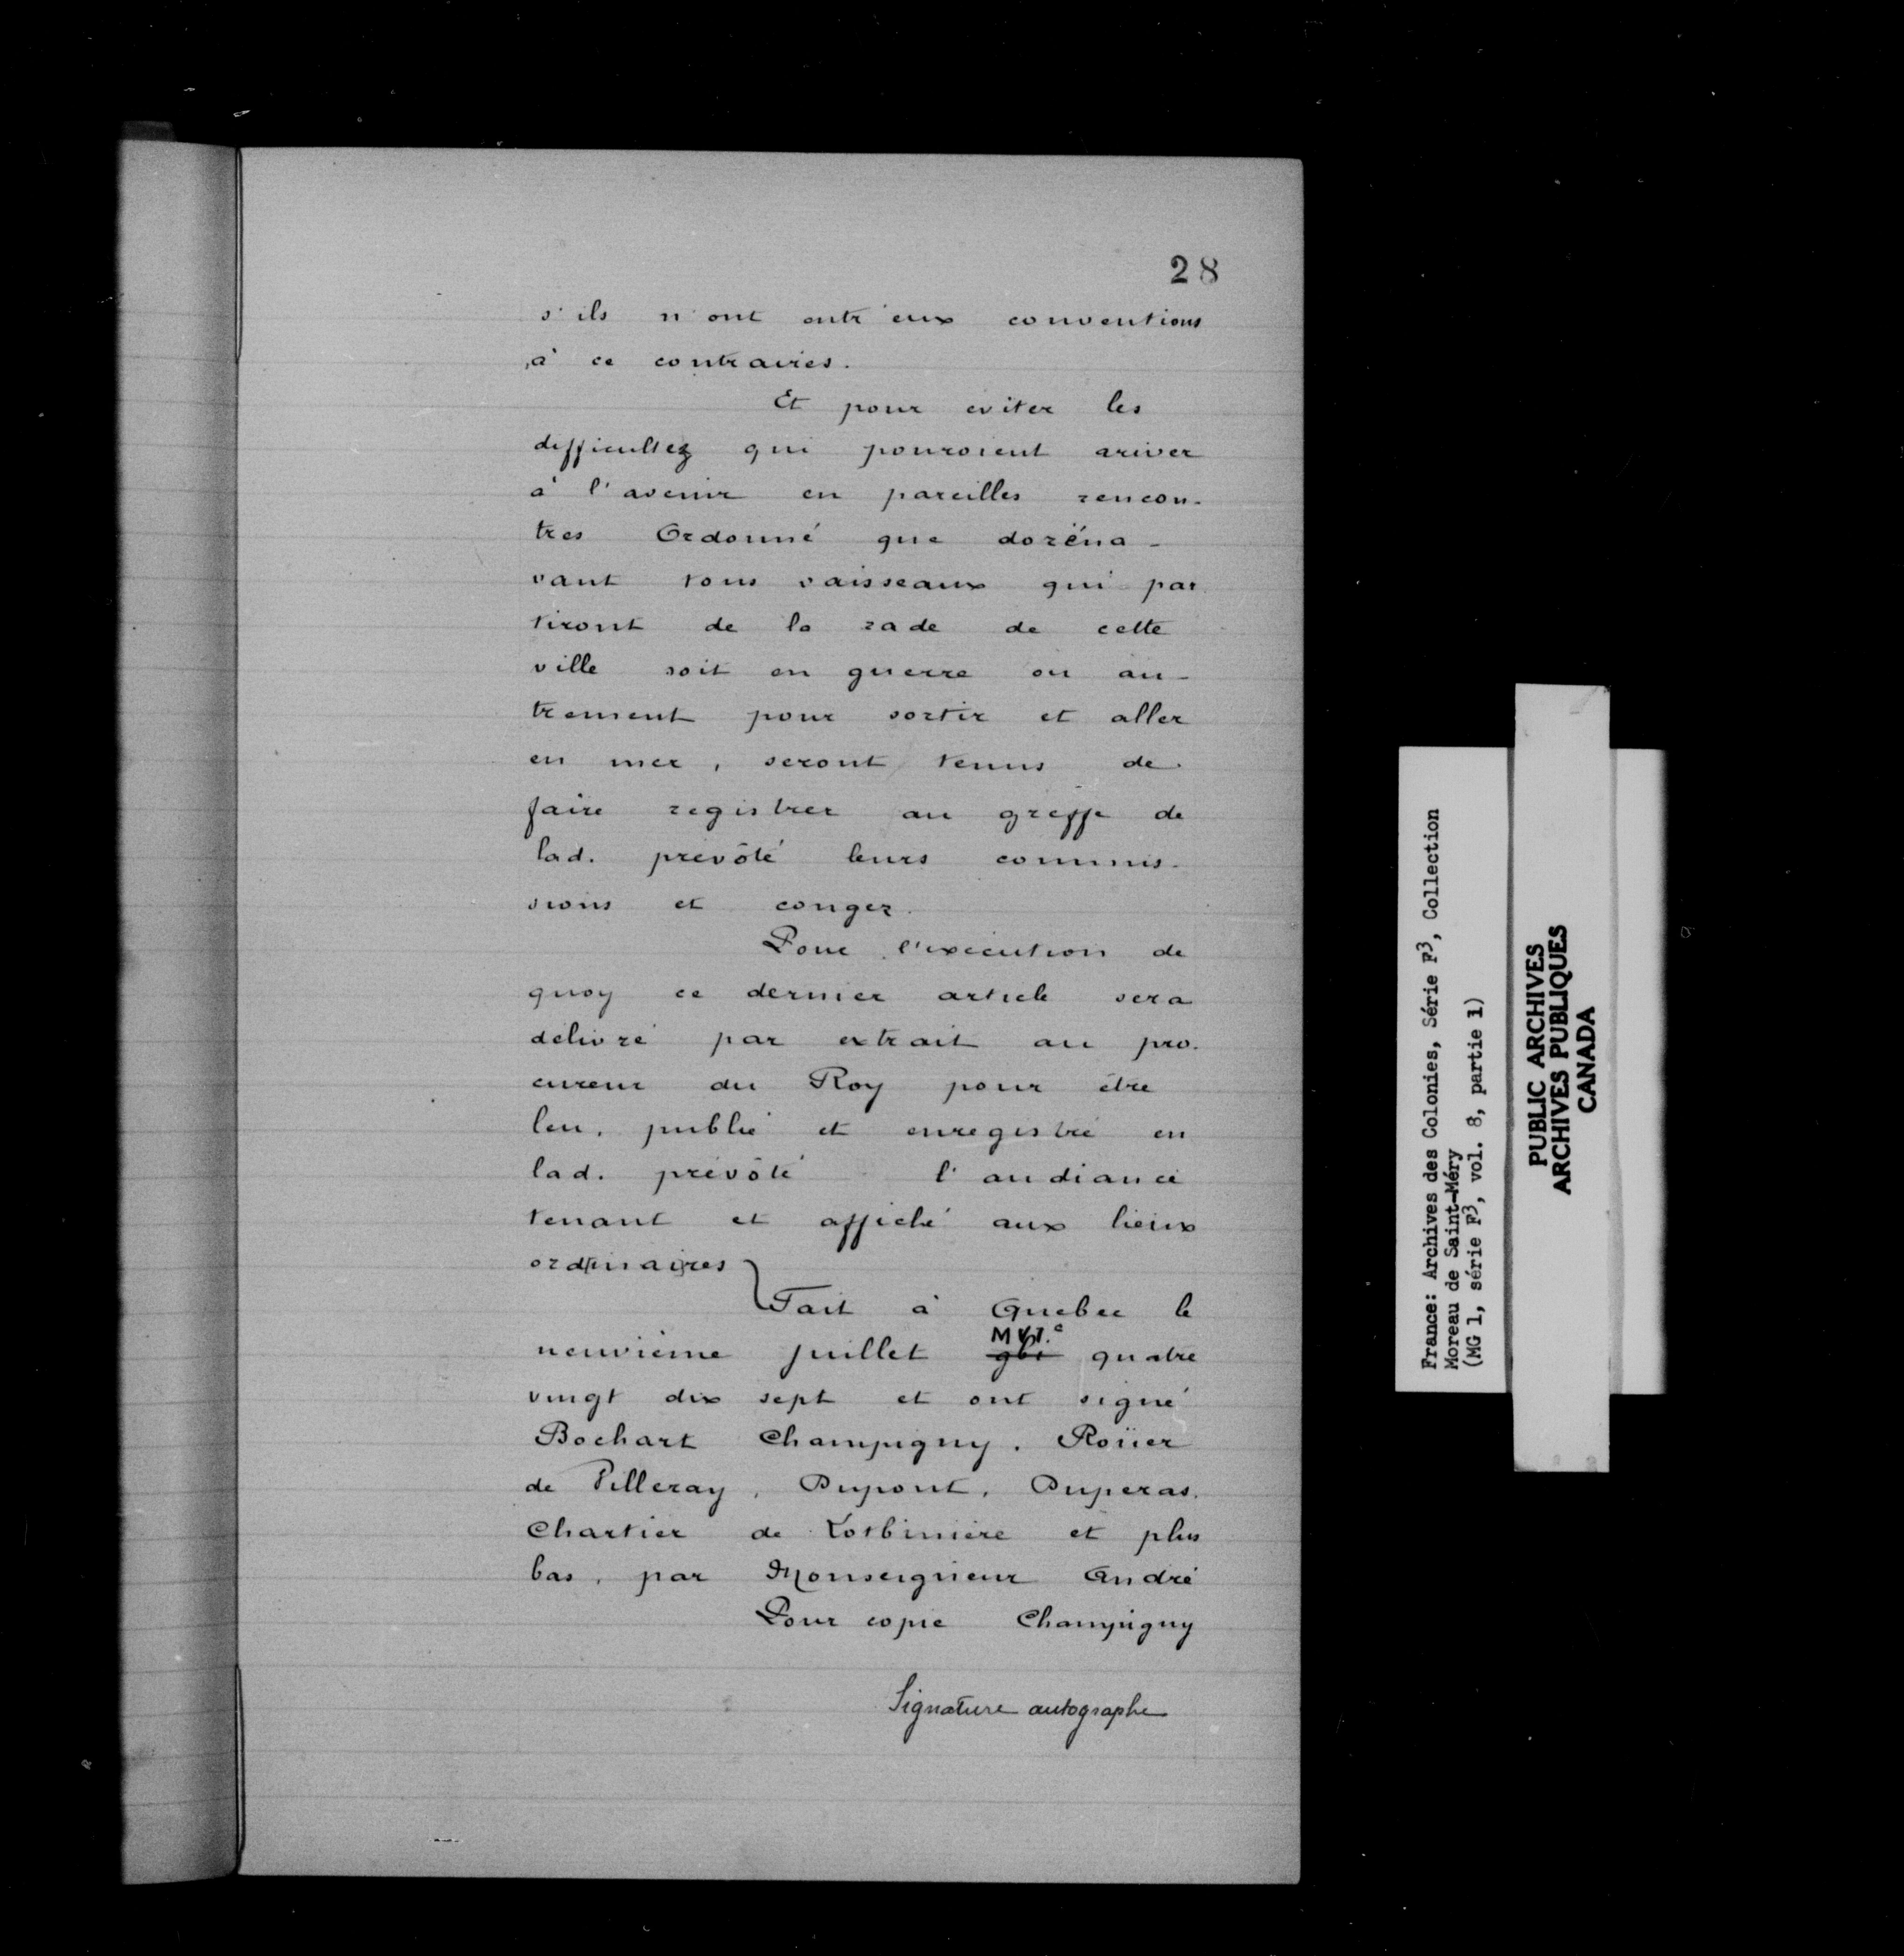 28
s'ils n'ont entr'eux conventions
à ce contraires.
Et pour eviter les
difficultez qui pouroient ariver
à l'avenir en pareilles rencon-
tres Ordonné que dorèna-
vant tous vaisseaux qui par
tiront de la rade de cette
ville soit en guerre ou au-
trement pour sortir et aller
en mer, seront tenus de
faire registrer au greffe de
lad. prevôté leurs commis-
sions et congez.
Pour l'exécution de
quoy ce dernier article sera
délivré par extrait au pro-
cureur du Roy pour être
leu, publié et enregistré en
lad. prévôté l'audiance
tenant et affiché aux lieux
ordinaires
Fait à Quebec le
neuvième juillet quatre
vingt dix sept et ont signé
Bochart Champigny. Roüer
de Villeray, Dupont, Duperas.
Chartier de Lotbinière et plus
bas, par Monseigneur André
Pour copie Champigny
Signature autographe
France: Archives des Colonies, Série F3, Collection
Moreau de Saint-Méry
(MG 1, série F3, vol. 8, partie 1)
PUBLIC ARCHIVES
ARCHIVES PUBLIQUES
CANADA